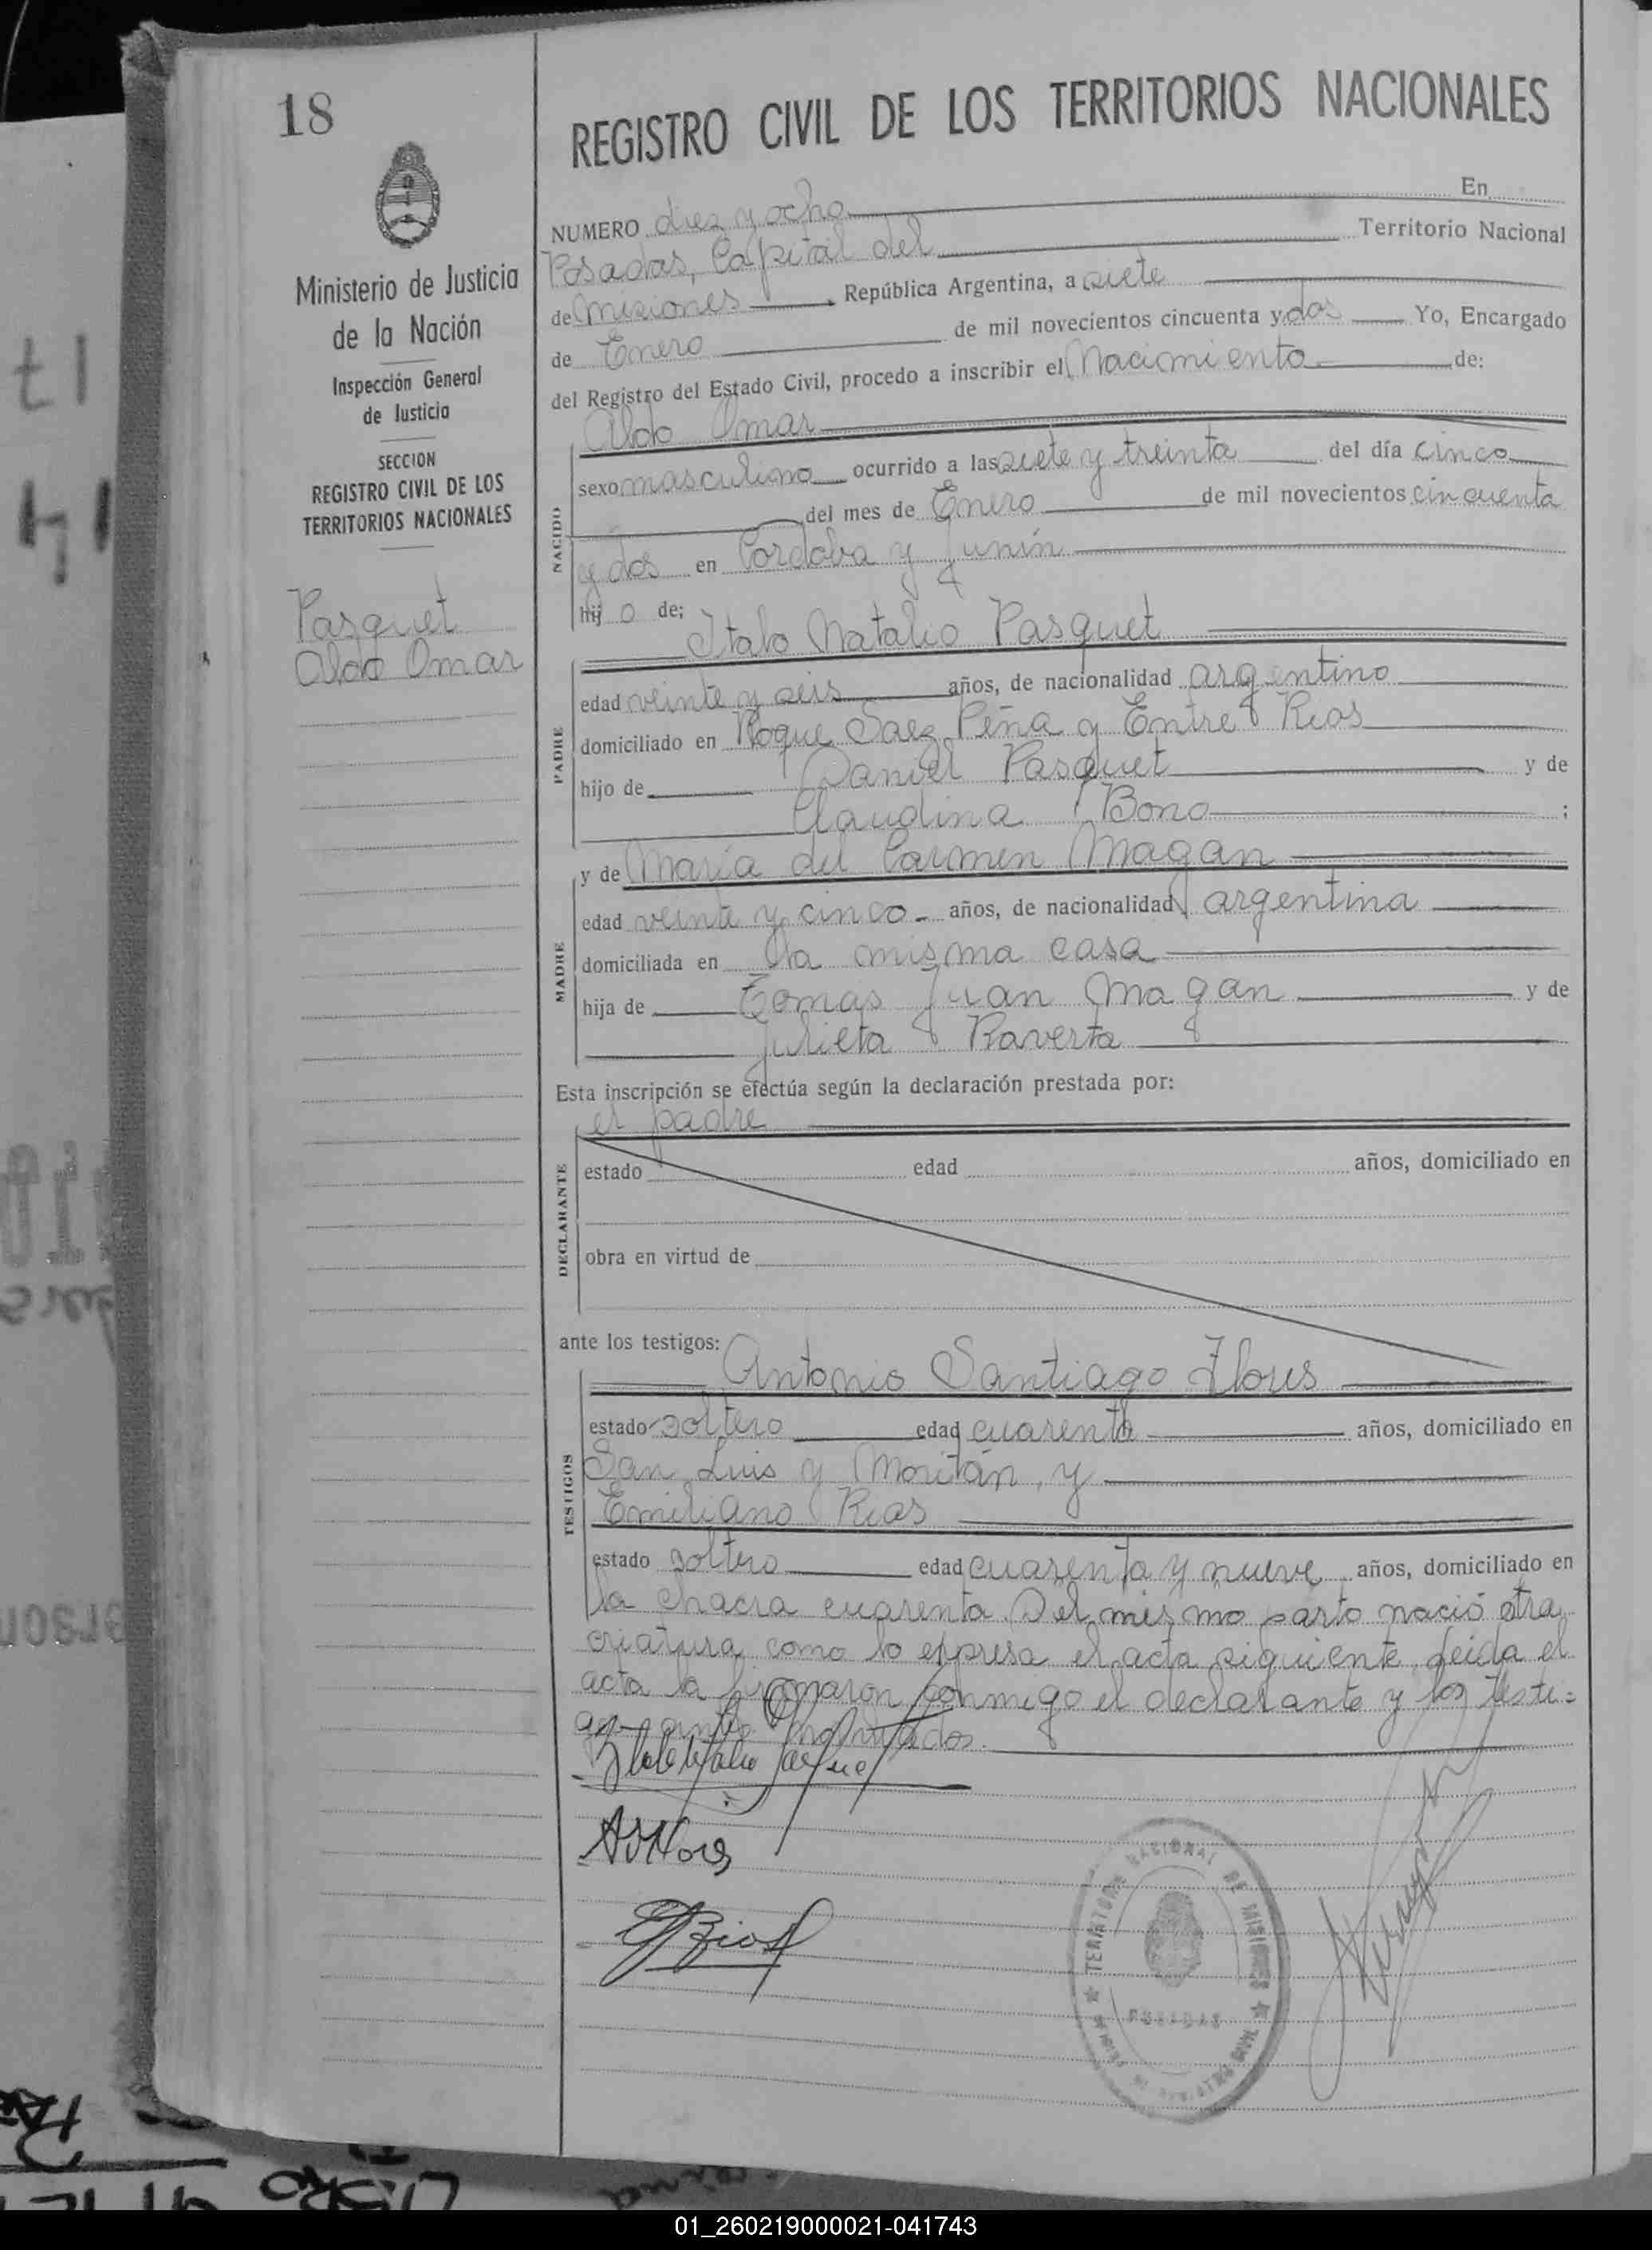 18
REGISTRO CIVIL DE LOS TERRITORIOS NACIONALES
Ministerio de Justicia
de la Nación
Inspección General
de Justicia
SECCION
REGISTRO CIVIL DE LOS
TERRITORIOS NACIONALES
Pasquet
Aldo Omar
NUMERO diez y ocho En
Posadas, Capital del Territorio Nacional
de Misiones República Argentina, a siete
de Enero de mil novecientos cincuenta y dos Yo, Encargado
del Registro del Estado Civil, procedo a inscribir el Nacimiento de:
Aldo Omar
NACIDO
sexo masculino ocurrido a las siete y treinta del día cinco
del mes de Enero de mil novecientos cincuenta
y dos en Cordoba y Junín
hij o de;
Italo Natalio Pasquet
PADRE
edad veinte y seis años, de nacionalidad argentino
domiciliado en Roque Saez Peña y Entre Rios
hijo de Daniel Pasquet y de
Claudina Bono ;
y de Maria del Carmen Magan
MADRE
edad veinte y cinco años, de nacionalidad argentina
domiciliada en la misma casa
hija de Tomas Juan Magan y de
Julieta Raverta
Esta inscripción se efectúa según la declaración prestada por:
el padre
DECLARANTE
estado edad años, domiciliado en
obra en virtud de
ante los testigos:
Antonio Santiago Flores
TESTIGOS
estado soltero edad cuarenta años, domiciliado en
San Luis y Moritán, y
Emiliano Rios
estado soltero edad cuarenta y nueve años, domiciliado en
la chacra cuarenta. Del mismo parto nació otra
criatura como lo expresa el acta siguiente, leida el
acta la firmaron conmigo el declarante y los testi=
gos antes nombrados.
Italo Natalio Pasquet
ASFlores
ERios
TERRITORIO NACIONAL DE MISIONES
POSADAS
REGISTRO CIVIL
01_260219000021-041743